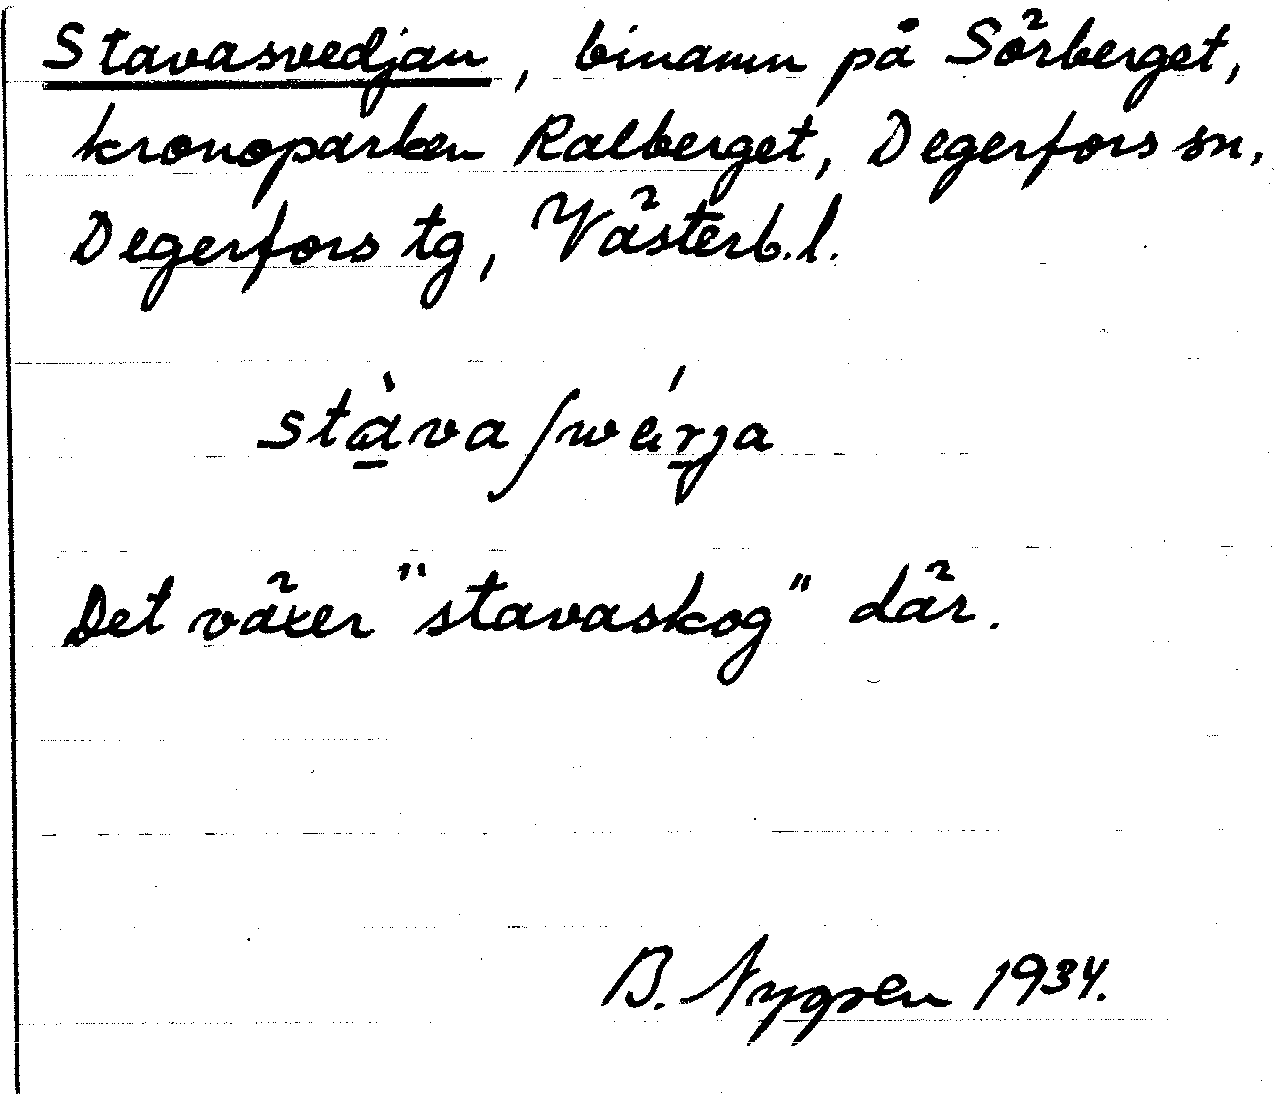 Stavasvedjan, binamn på Sörberget,
kronoparken Ralberget, Degerfors sn,
Degerfors tg, Västerb. l.
Det växer "stavaskog" där.
B. Nygren 1934.